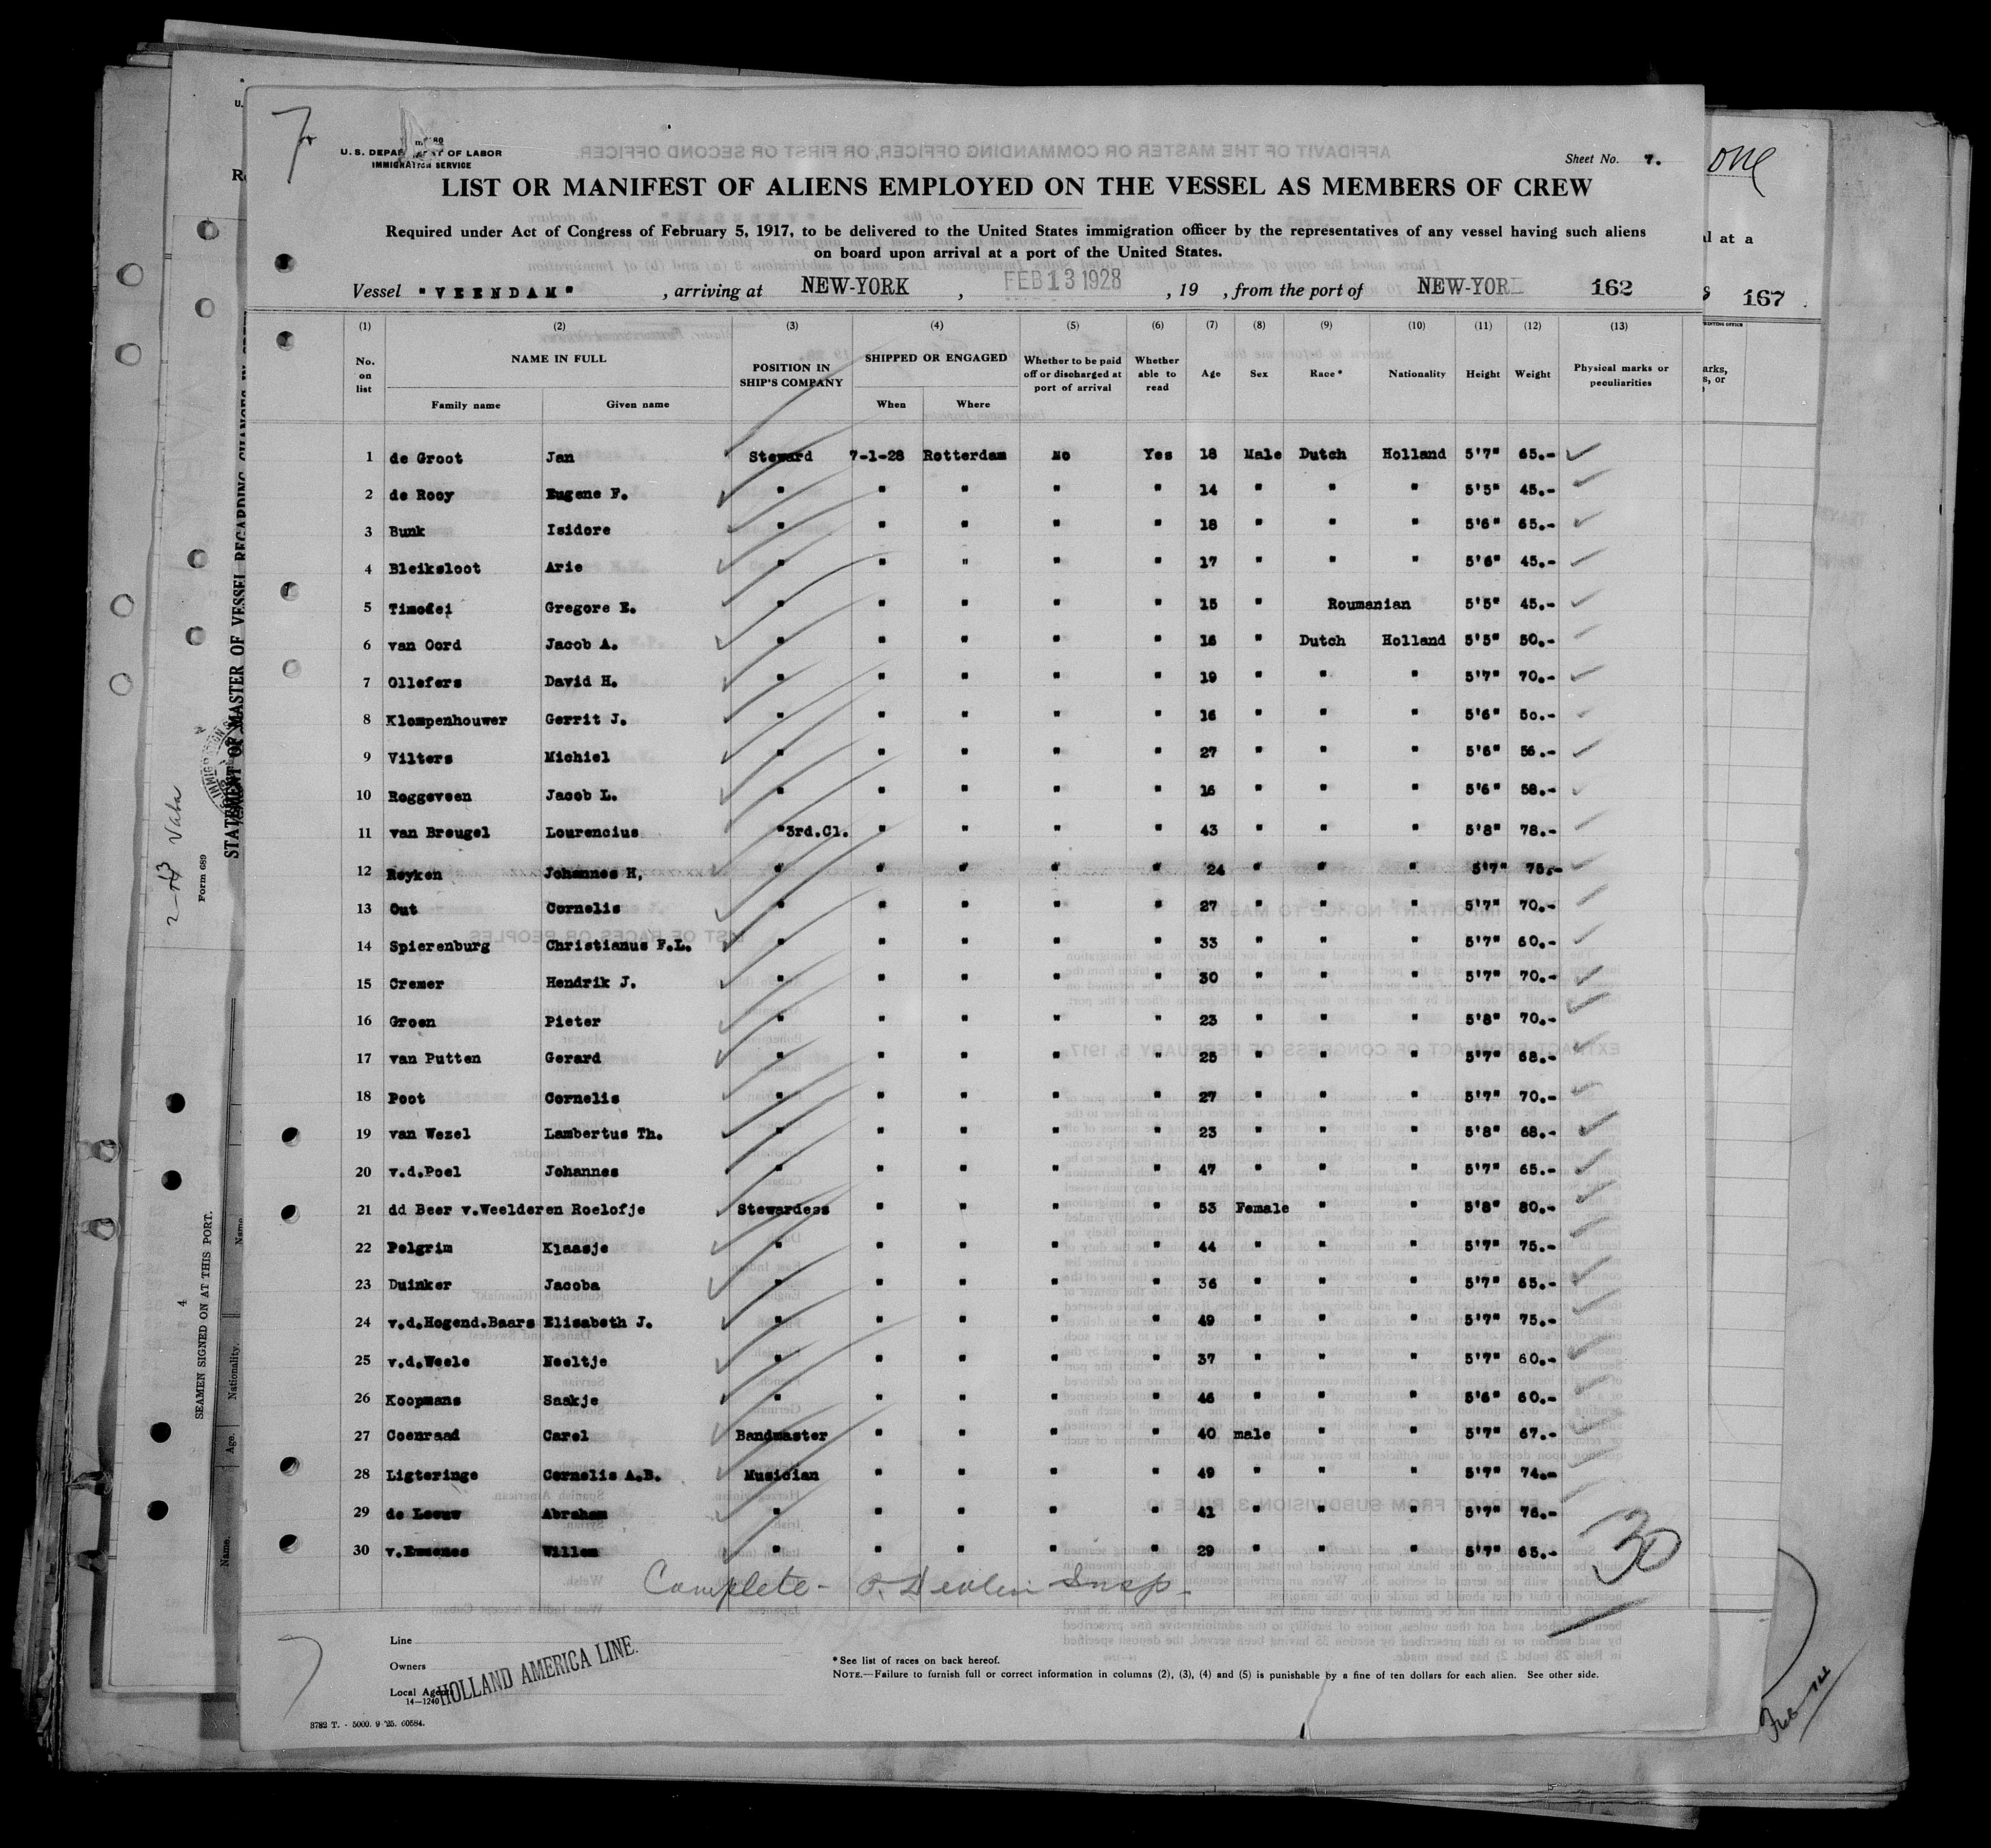 7
U. S. DEPARTMENT OF LABOR
IMMIGRATION SERVICE
Sheet No. 7.
one
LIST OR MANIFEST OF ALIENS EMPLOYED ON THE VESSEL AS MEMBERS OF CREW
Required under Act of Congress of February 5, 1917, to be delivered to the United States immigration officer by the representatives of any vessel having such aliens
on board upon arrival at a port of the United States.
Vessel "VEENDAM", arriving at NEW-YORK, FEB 13 1928, 19 , from the port of NEW-YOR 162
167
(1) (2) (3) (4) (5) (6) (7) (8) (9) (10) (11) (12) (13)
No. on list NAME IN FULL POSITION IN SHIP'S COMPANY SHIPPED OR ENGAGED Whether to be paid off or discharged at port of arrival Whether able to read Age Sex Race* Nationality Height Weight Physical marks or peculiarities
Family name Given name When Where
1 de Groot Jan Steward 7-1-28 Rotterdam No Yes 18 Male Dutch Holland 5'7" 65.-
2 de Rooy Eugene F. " " " " " 14 " " " 5'5" 45.-
3 Bunk Isidore " " " " " 18 " " " 5'6" 65.-
4 Bleiksloot Arie " " " " " 17 " " " 5'6" 45.-
5 Timofei Gregore E. " " " " " 15 " Roumanian 5'5" 45.-
6 van Oord Jacob A. " " " " " 16 " Dutch Holland 5'5" 50.-
7 Ollefers David H. " " " " " 19 " " " 5'7" 70.-
8 Klompenhouwer Gerrit J. " " " " " 16 " " " 5'6" 50.-
9 Vilters Michiel " " " " " 27 " " " 5'6" 56.-
10 Roggeveen Jacob L. " " " " " 16 " " " 5'6" 58.-
11 van Breugel Lourencius "3rd.Cl. " " " " 43 " " " 5'8" 78.-
12 Reyken Johannes H, " " " " " 24 " " " 5'7" 75.-
13 Out Cornelis " " " " " 27 " " " 5'7" 70.-
14 Spierenburg Christianus F.L. " " " " " 33 " " " 5'7" 60.-
15 Cremer Hendrik J. " " " " " 30 " " " 5'7" 70.-
16 Groen Pieter " " " " " 23 " " " 5'8" 70.-
17 van Putten Gerard " " " " " 25 " " " 5'7" 68.-
18 Poot Cornelis " " " " " 27 " " " 5'7" 70.-
19 van Wezel Lambertus Th. " " " " " 23 " " " 5'8" 68.-
20 v.d.Poel Johannes " " " " " 47 " " " 5'7" 65.-
21 dd Beer v.Weelderen Roelofje Stewardess " " " " 53 Female " " 5'8" 80.-
22 Pelgrim Klaasje " " " " " 44 " " " 5'7" 75.-
23 Duinker Jacoba " " " " " 36 " " " 5'7" 65.-
24 v.d.Hogend.Baars Elisabeth J. " " " " " 49 " " " 5'7" 75.-
25 v.d.Weele Neeltje " " " " " 37 " " " 5'7" 60.-
26 Koopmans Saakje " " " " " 46 " " " 5'6" 60.-
27 Coenraad Carel Bandmaster " " " " 40 male " " 5'7" 67.-
28 Ligteringe Cornelis A.B. Musician " " " " 49 " " " 5'7" 74.-
29 de Leeuw Abraham " " " " " 41 " " " 5'7" 76.-
30 v.Emmenes Willem " " " " " 29 " " " 5'7" 65.-
30
Complete - Devlin Insp.
Line
Owners
Local Agent
HOLLAND AMERICA LINE.
14-1240
*See list of races on back hereof.
NOTE.—Failure to furnish full or correct information in columns (2), (3), (4) and (5) is punishable by a fine of ten dollars for each alien. See other side.
3782 T. - 5000. 9 '25. 60584.
STATEMENT OF MASTER OF VESSEL REGARDING CHANGES IN
Form 689
SEAMEN SIGNED ON AT THIS PORT.
Name. Age. Nationality. Name.
Feb 14